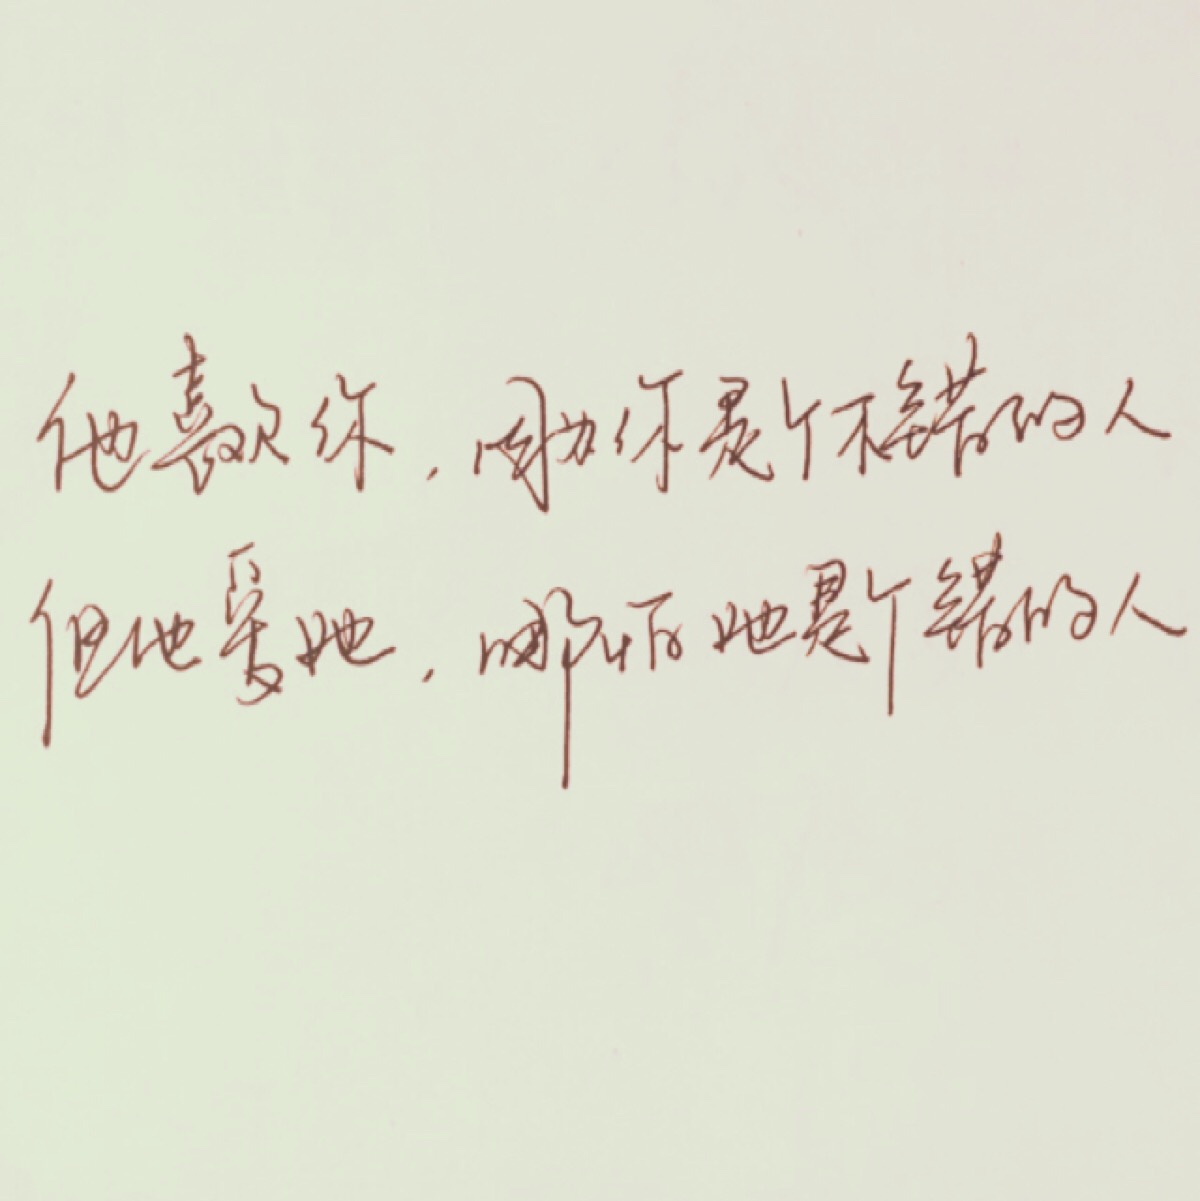 他喜欢你，因为你是个不错的人
但他爱她，哪怕她是个错的人